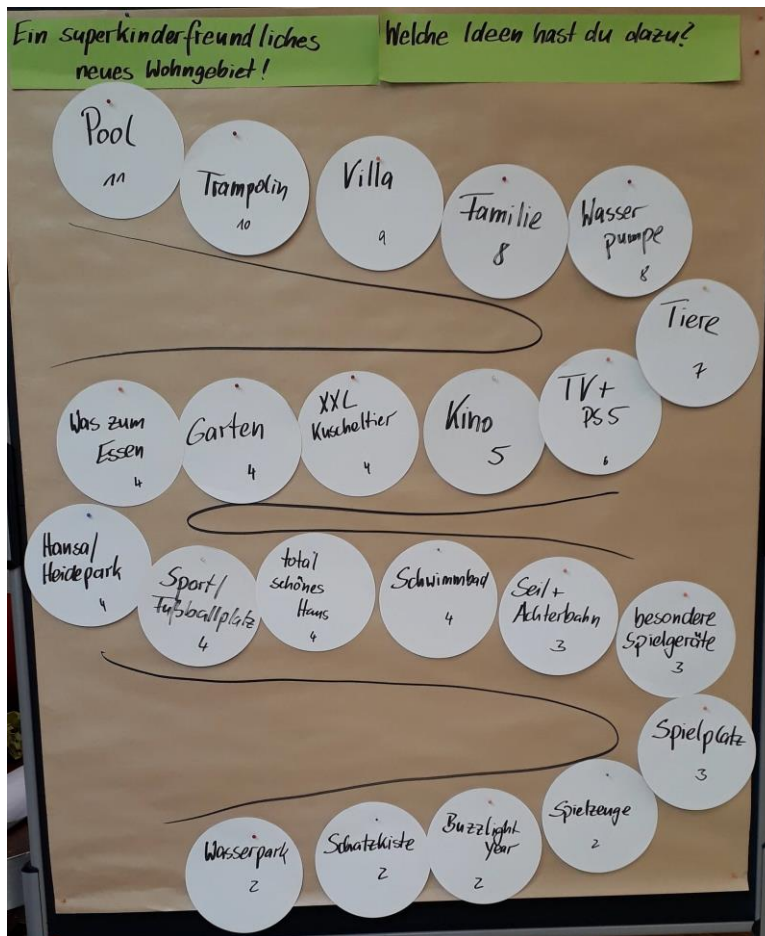 Ein superkinderfreundliches
neues Wohngebiet!
Welche Ideen hast du dazu?
Pool
11
Trampolin
10
Villa
9
Familie
8
Wasser
pumpe
8
Tiere
7
TV+
PS5
6
Kino
5
XXL
Kuscheltier
4
Garten
4
Was zum
Essen
4
Hansa/
Heidepark
4
Sport/
Fußballplatz
4
total
schönes
Haus
4
Schwimmbad
4
Seil+
Achterbahn
3
besondere
Spielgeräte
3
Spielplatz
3
Spielzeuge
2
Buzzlight
year
2
Schatzkiste
2
Wasserpark
2